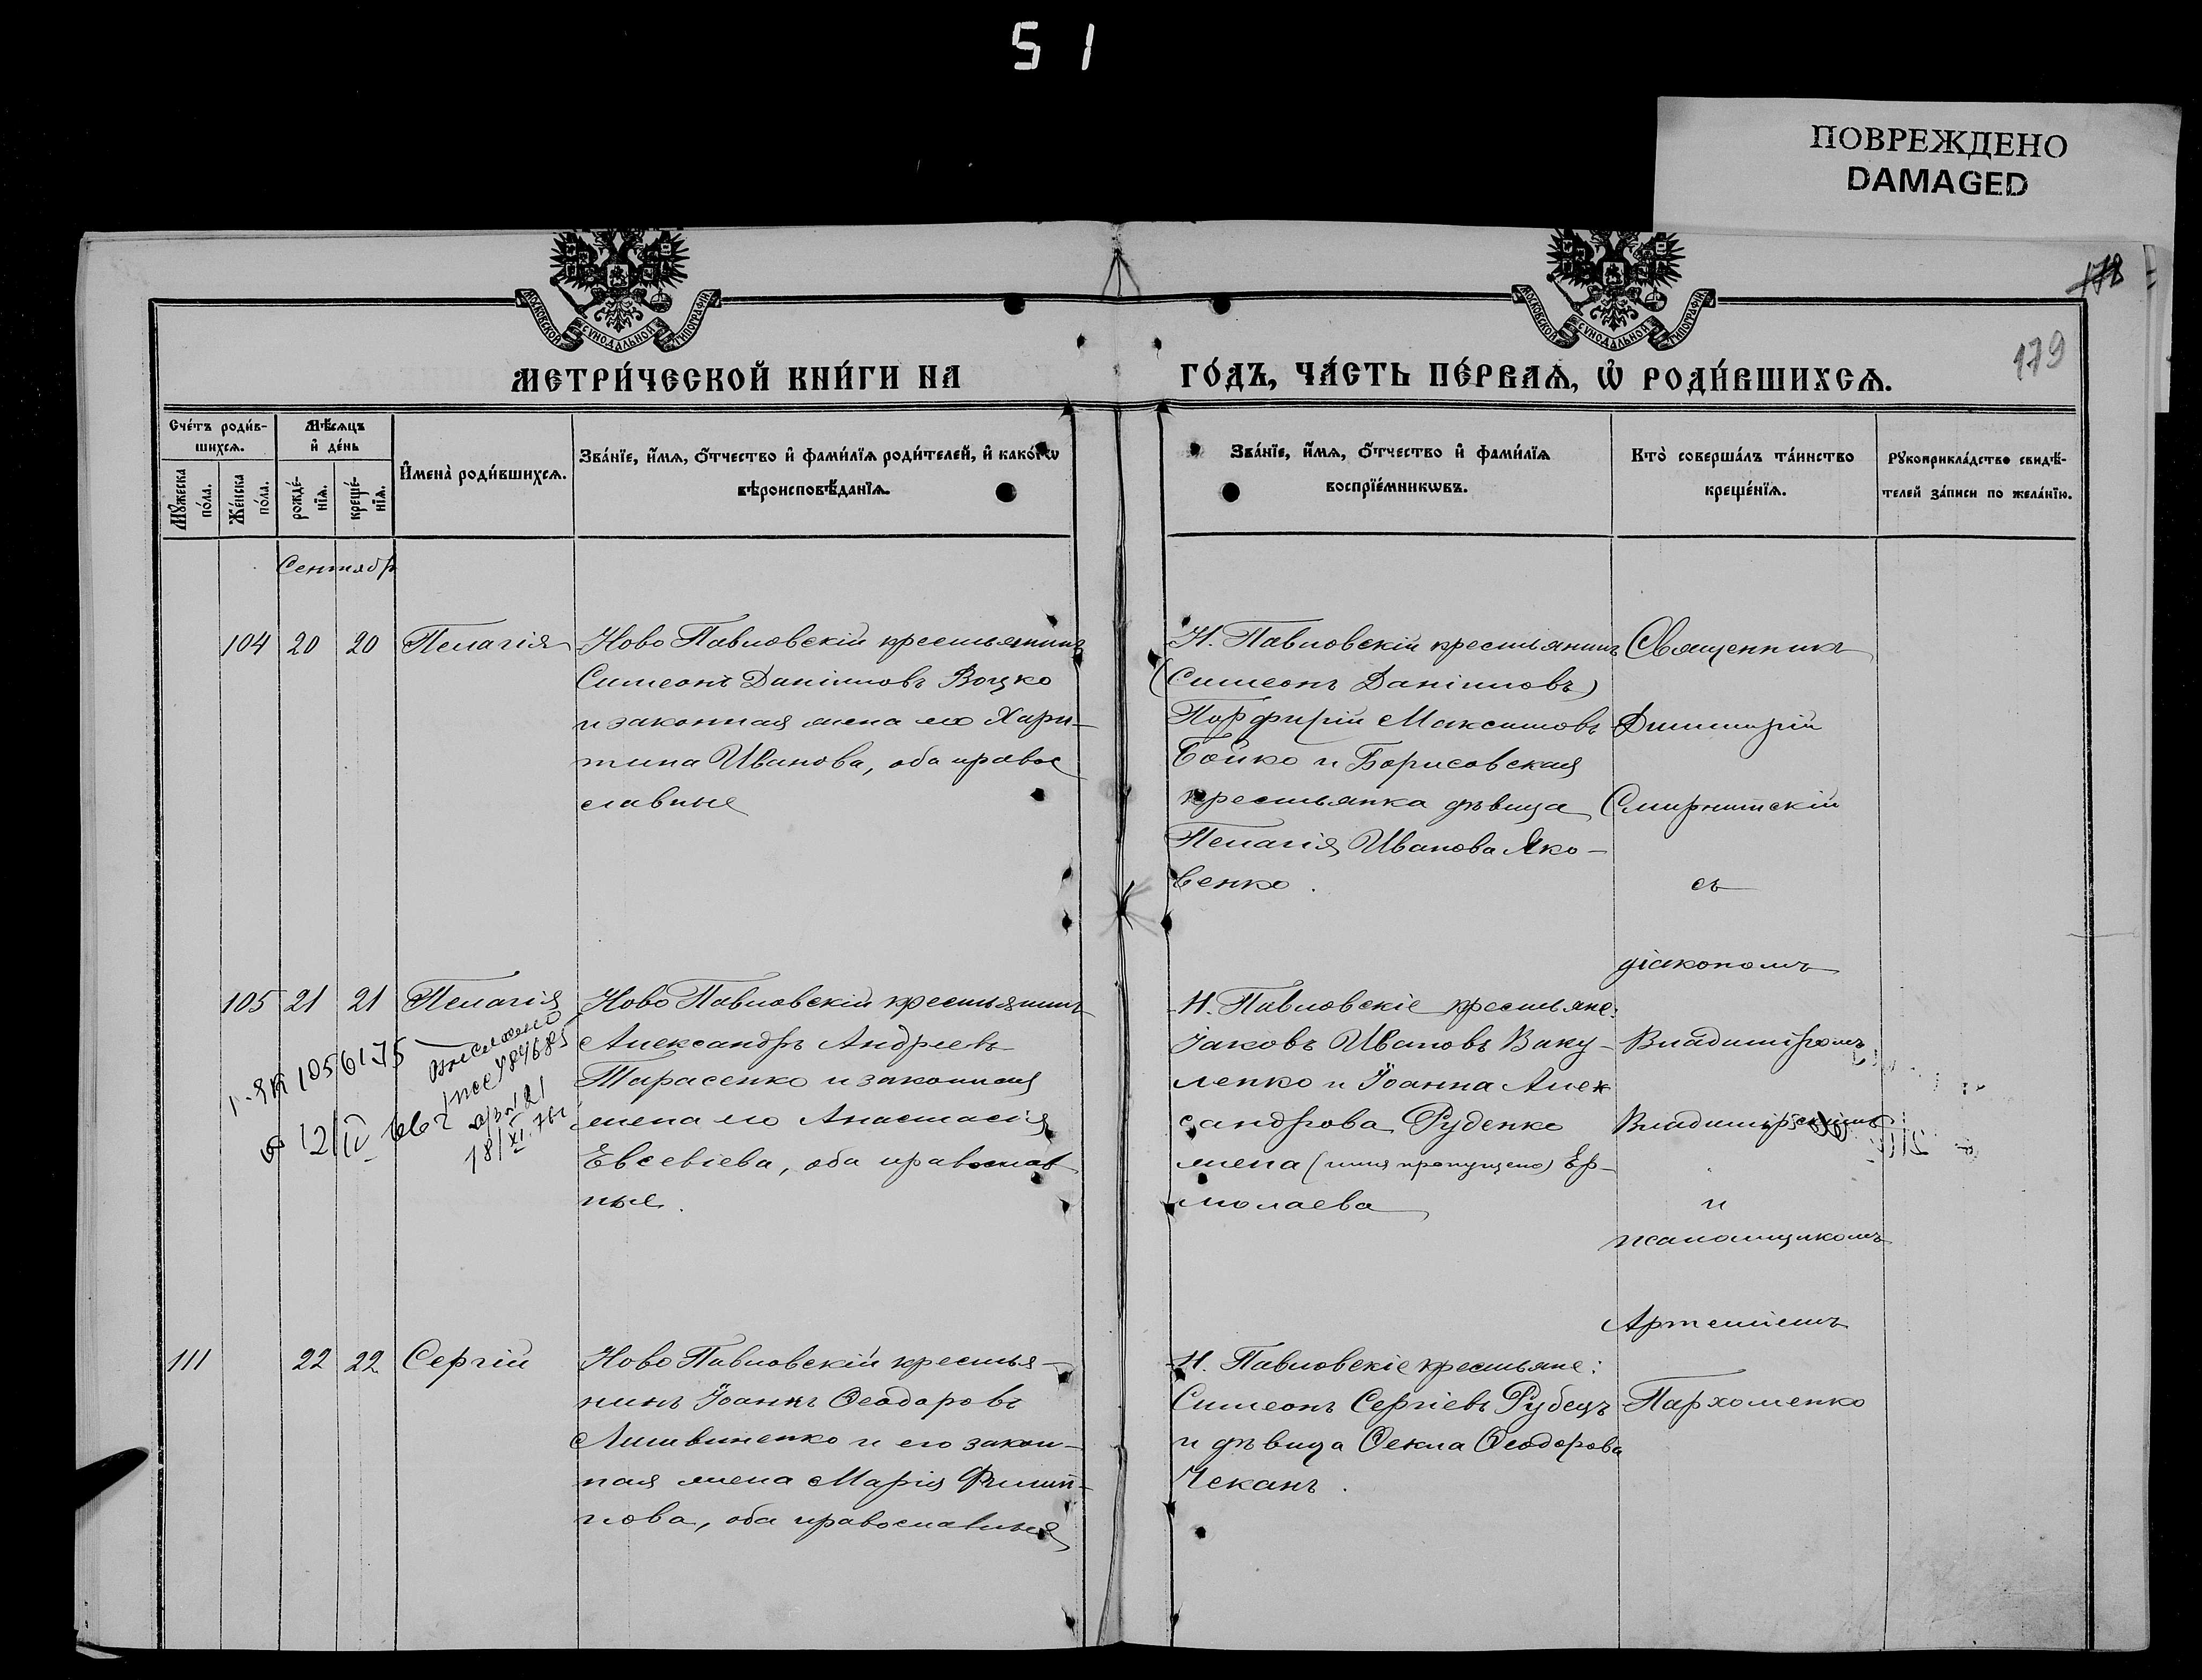 51
ПОВРЕЖДЕНО
DAMAGED
178
179
МОСКОВСКОЙ СѴНОДАЛЬНОЙ ТИПОГРАФІИ
МОСКОВСКОЙ СѴНОДАЛЬНОЙ ТИПОГРАФІИ
МЕТРИ́ЧЕСКОЙ КНИ́ГИ НА
ГО́ДЪ, ЧА́СТЬ ПЕ́РВАѦ, Ѡ҆ РОДИ́ВШИХСѦ.
Сче́тъ роди́в-
шихсѧ.
Мꙋ́жеска
по́ла.
Же́нска
по́ла.
Мѣ́сѧцъ
и҆ де́нь
рожде́-
нїѧ.
креще́-
нїѧ.
И҆мена̀ роди́вшихсѧ.
Зва́нїе, и҆́мѧ, ѻ҆́тчество и҆ фами́лїѧ роди́телей, и҆ како́гѡ
вѣроисповѣ́данїѧ.
Зва́нїе, и҆́мѧ, ѻ҆́тчество и҆ фами́лїѧ
воспрїе́мникѡвъ.
Кто̀ соверша́лъ та́инство
креще́нїѧ.
Рꙋкоприкла́дство свидѣ́-
телей за́писи по жела́нїю.
Сентябр
104 20 20 Пелагія
Ново Павловскій крестьянинъ
Симеонъ Даніиловъ Воцко
и законная жена его Хари-
тина Иванова, оба право
славные
Н. Павловскій крестьянинъ
(Симеонъ Даніиловъ)
Порфирій Максимовъ
Бойко и Борисовская
крестьянка дѣвица
Пелагія Иванова Яко-
венко.
Священникъ
Димитрій
съ
діакономъ
105 21 21 Пелагія
1056175
18/XI.76г
Ново Павловскій крестьянинъ
Александръ Андреевъ
Тарасенко и законная
жена его Анастасія
Евсевіева, оба православ
ные.
Н. Павловскіе крестьяне:
Іаковъ Ивановъ Баку-
ленко и Іоанна Алек
сандрова Руденко
жена (имя пропущено) Ер-
молаева
Владиміромъ
Владимірскимъ
и
псаломщикомъ
Артеміемъ
Пархоменко
111 22 22 Сергій
Ново Павловскій крестья-
нинъ Іоаннъ Ѳеодоровъ
Литвиненко и его закон-
ная жена Марія Филип-
пова, оба православные
Н. Павловскіе крестьяне:
Симеонъ Сергіевъ Рубецъ
и дѣвица Ѳекла Ѳеодорова
Чеканъ.